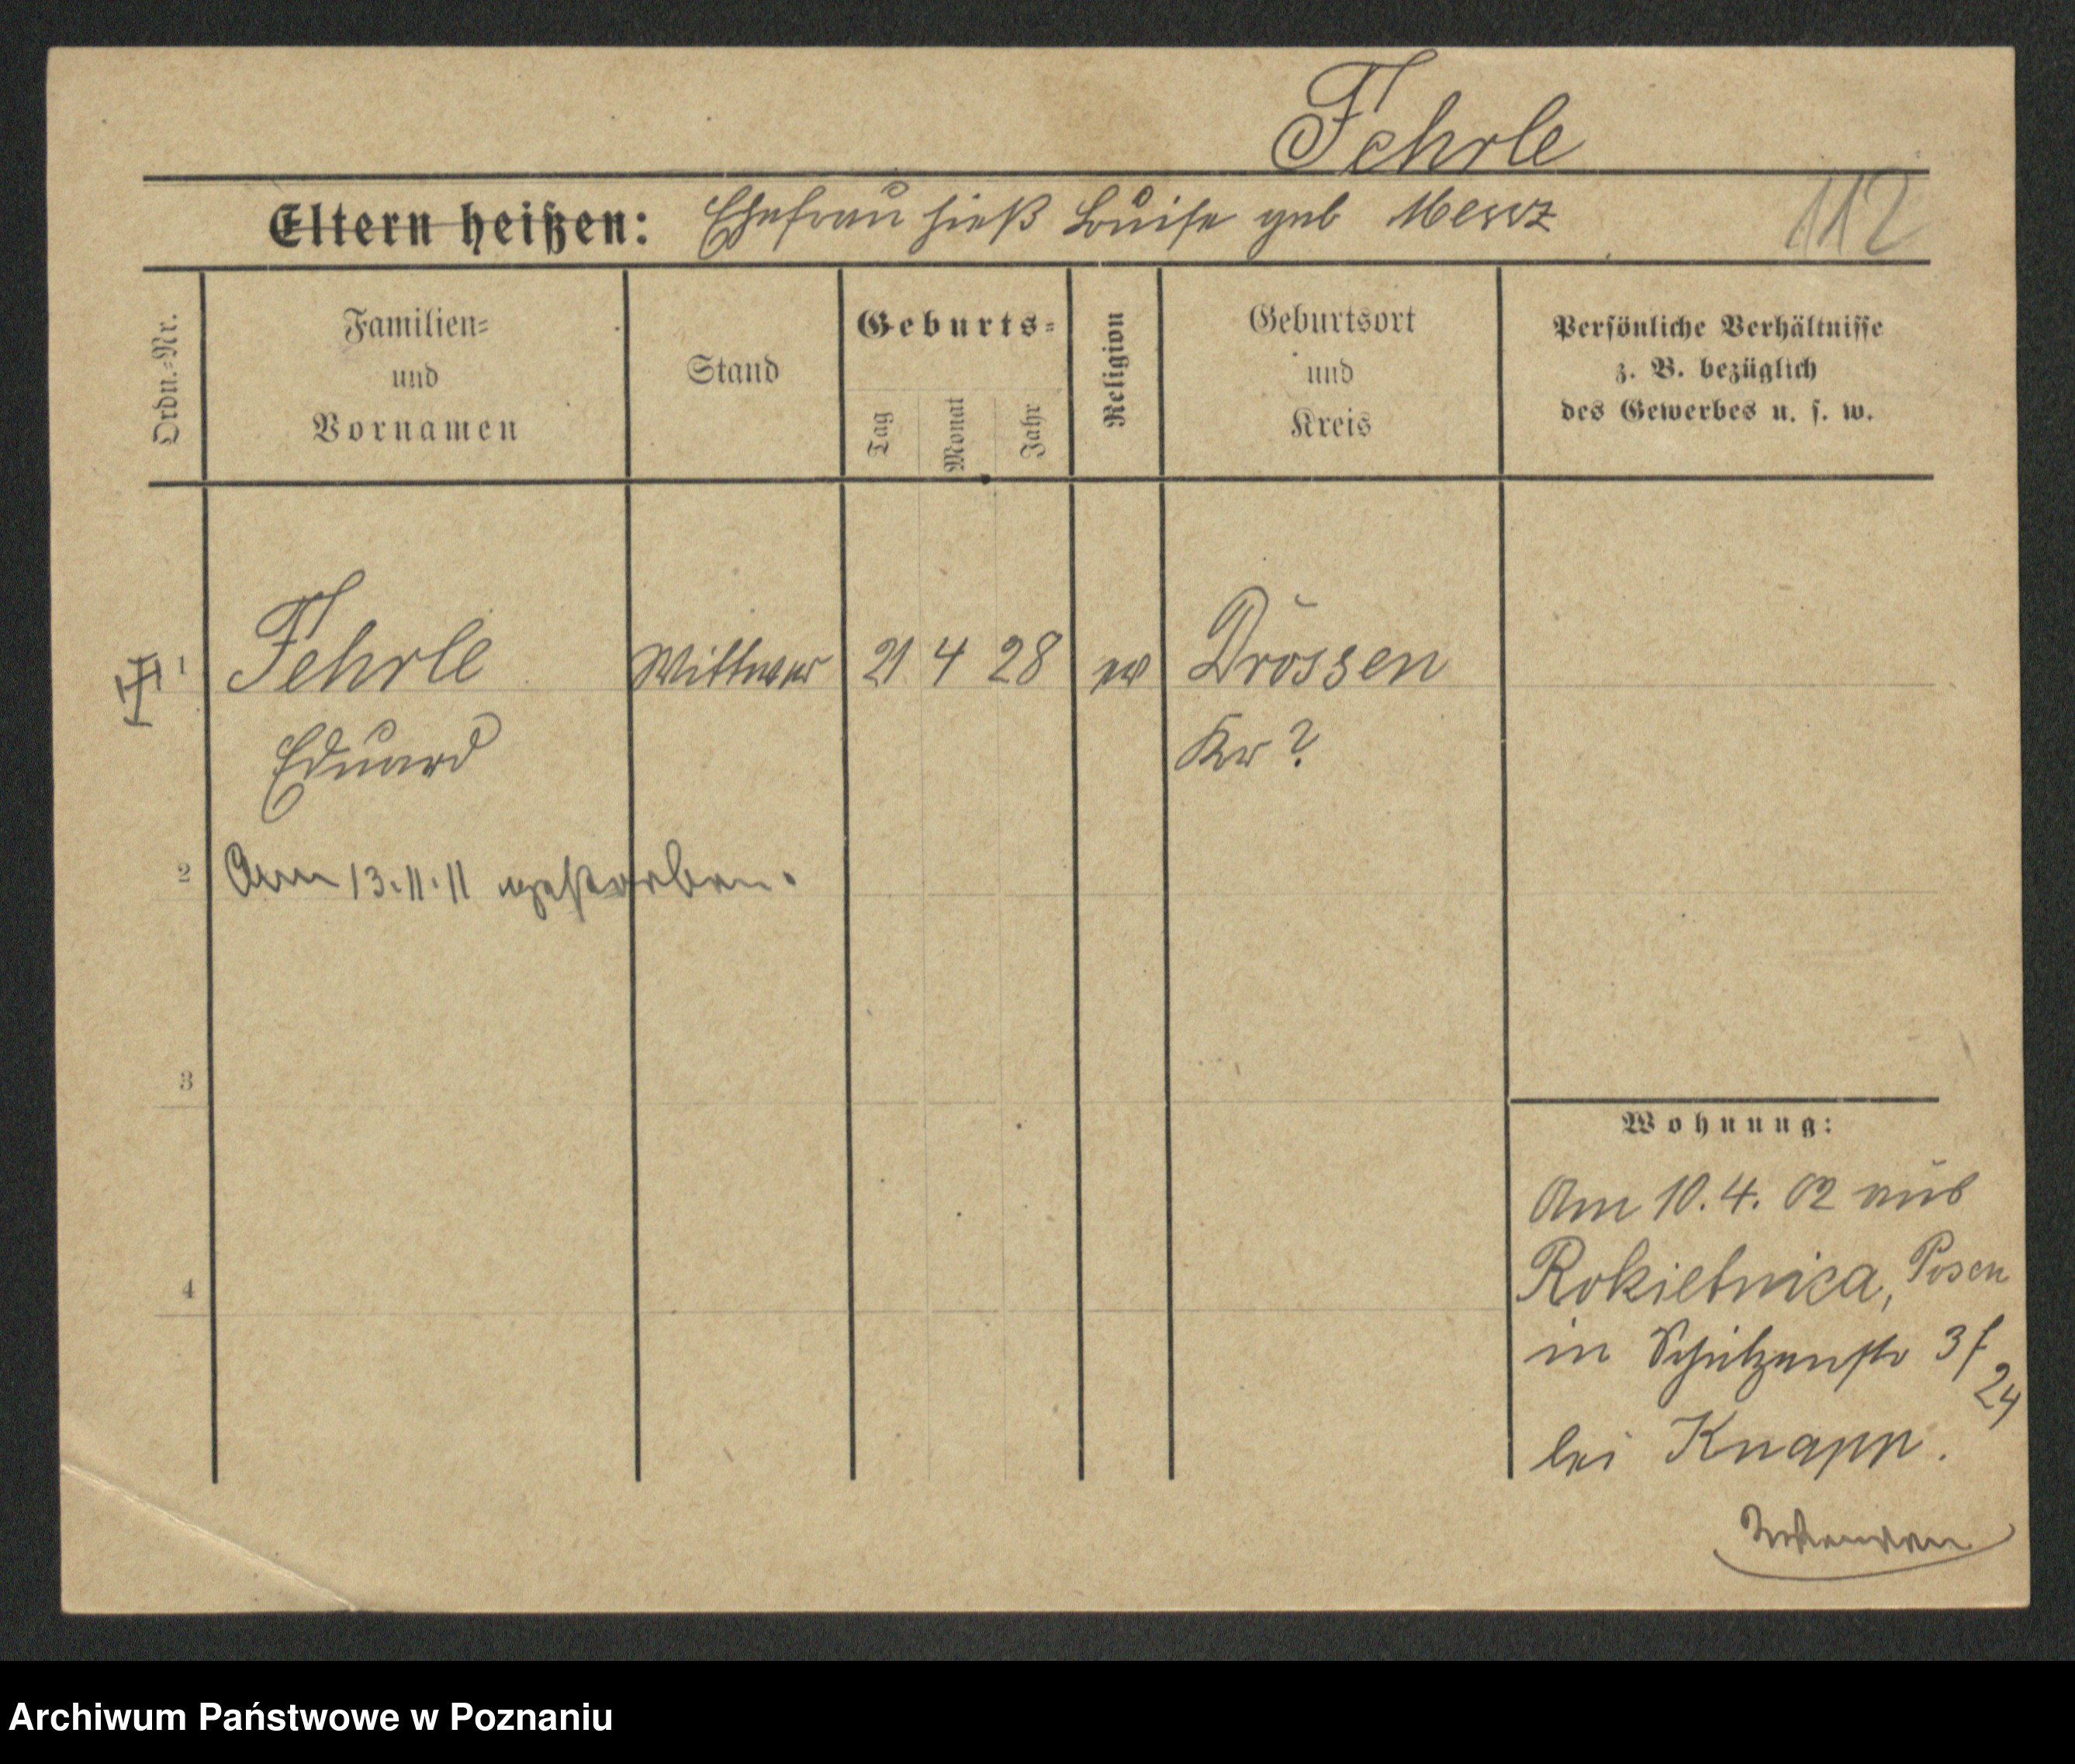 Fehrle
Eltern heißen: Ehefrau hieß Luise geb Merz
112
Ordn.=Nr.
Familien=
und
Vornamen
Stand
Geburts=
Tag
Monat
Jahr
Religion
Geburtsort
und
Kreis
Persönliche Verhältnisse
z. B. bezüglich
des Gewerbes u. s. w.
1 Fehrle Wittwer 21 4 28 ev Drossen
Eduard Kr ?
2 Am 13.11.11 gestorben.
3
Wohnung:
Am 10.4.02 aus
Rokietnica, Posen
4
in Schützenstr 31
24
bei Knapp.
Archiwum Państwowe w Poznaniu